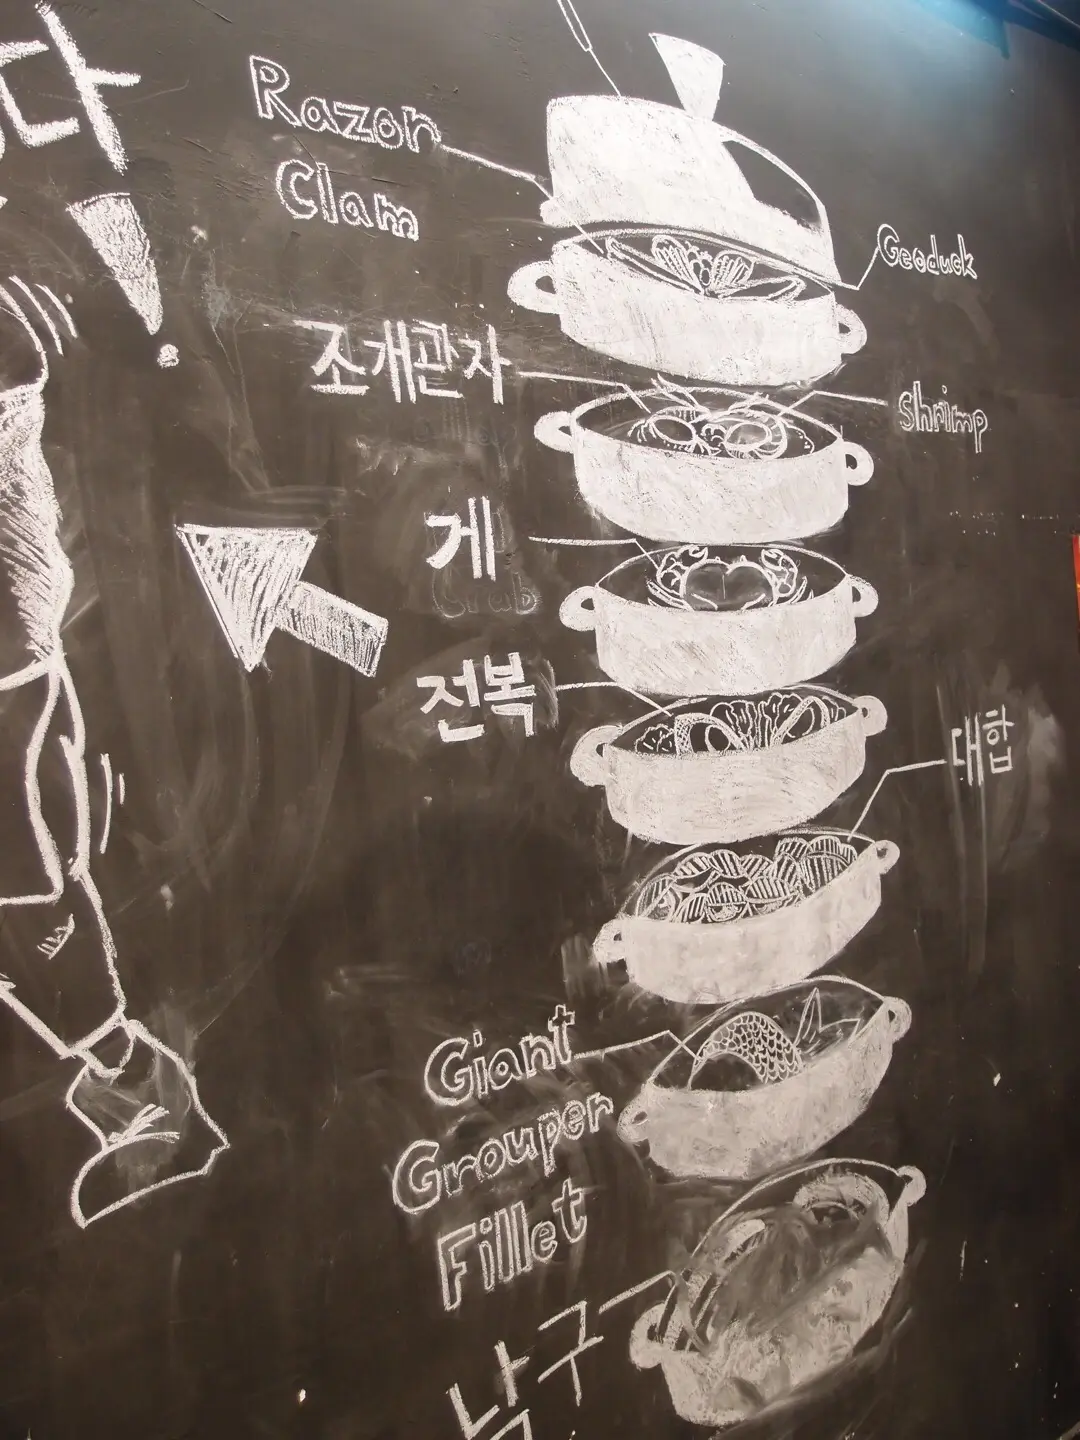 다!
Razor
Clam
Geoduck
조개관자
Shrimp
게
Crab
전복
대합
Giant
Grouper
Fillet